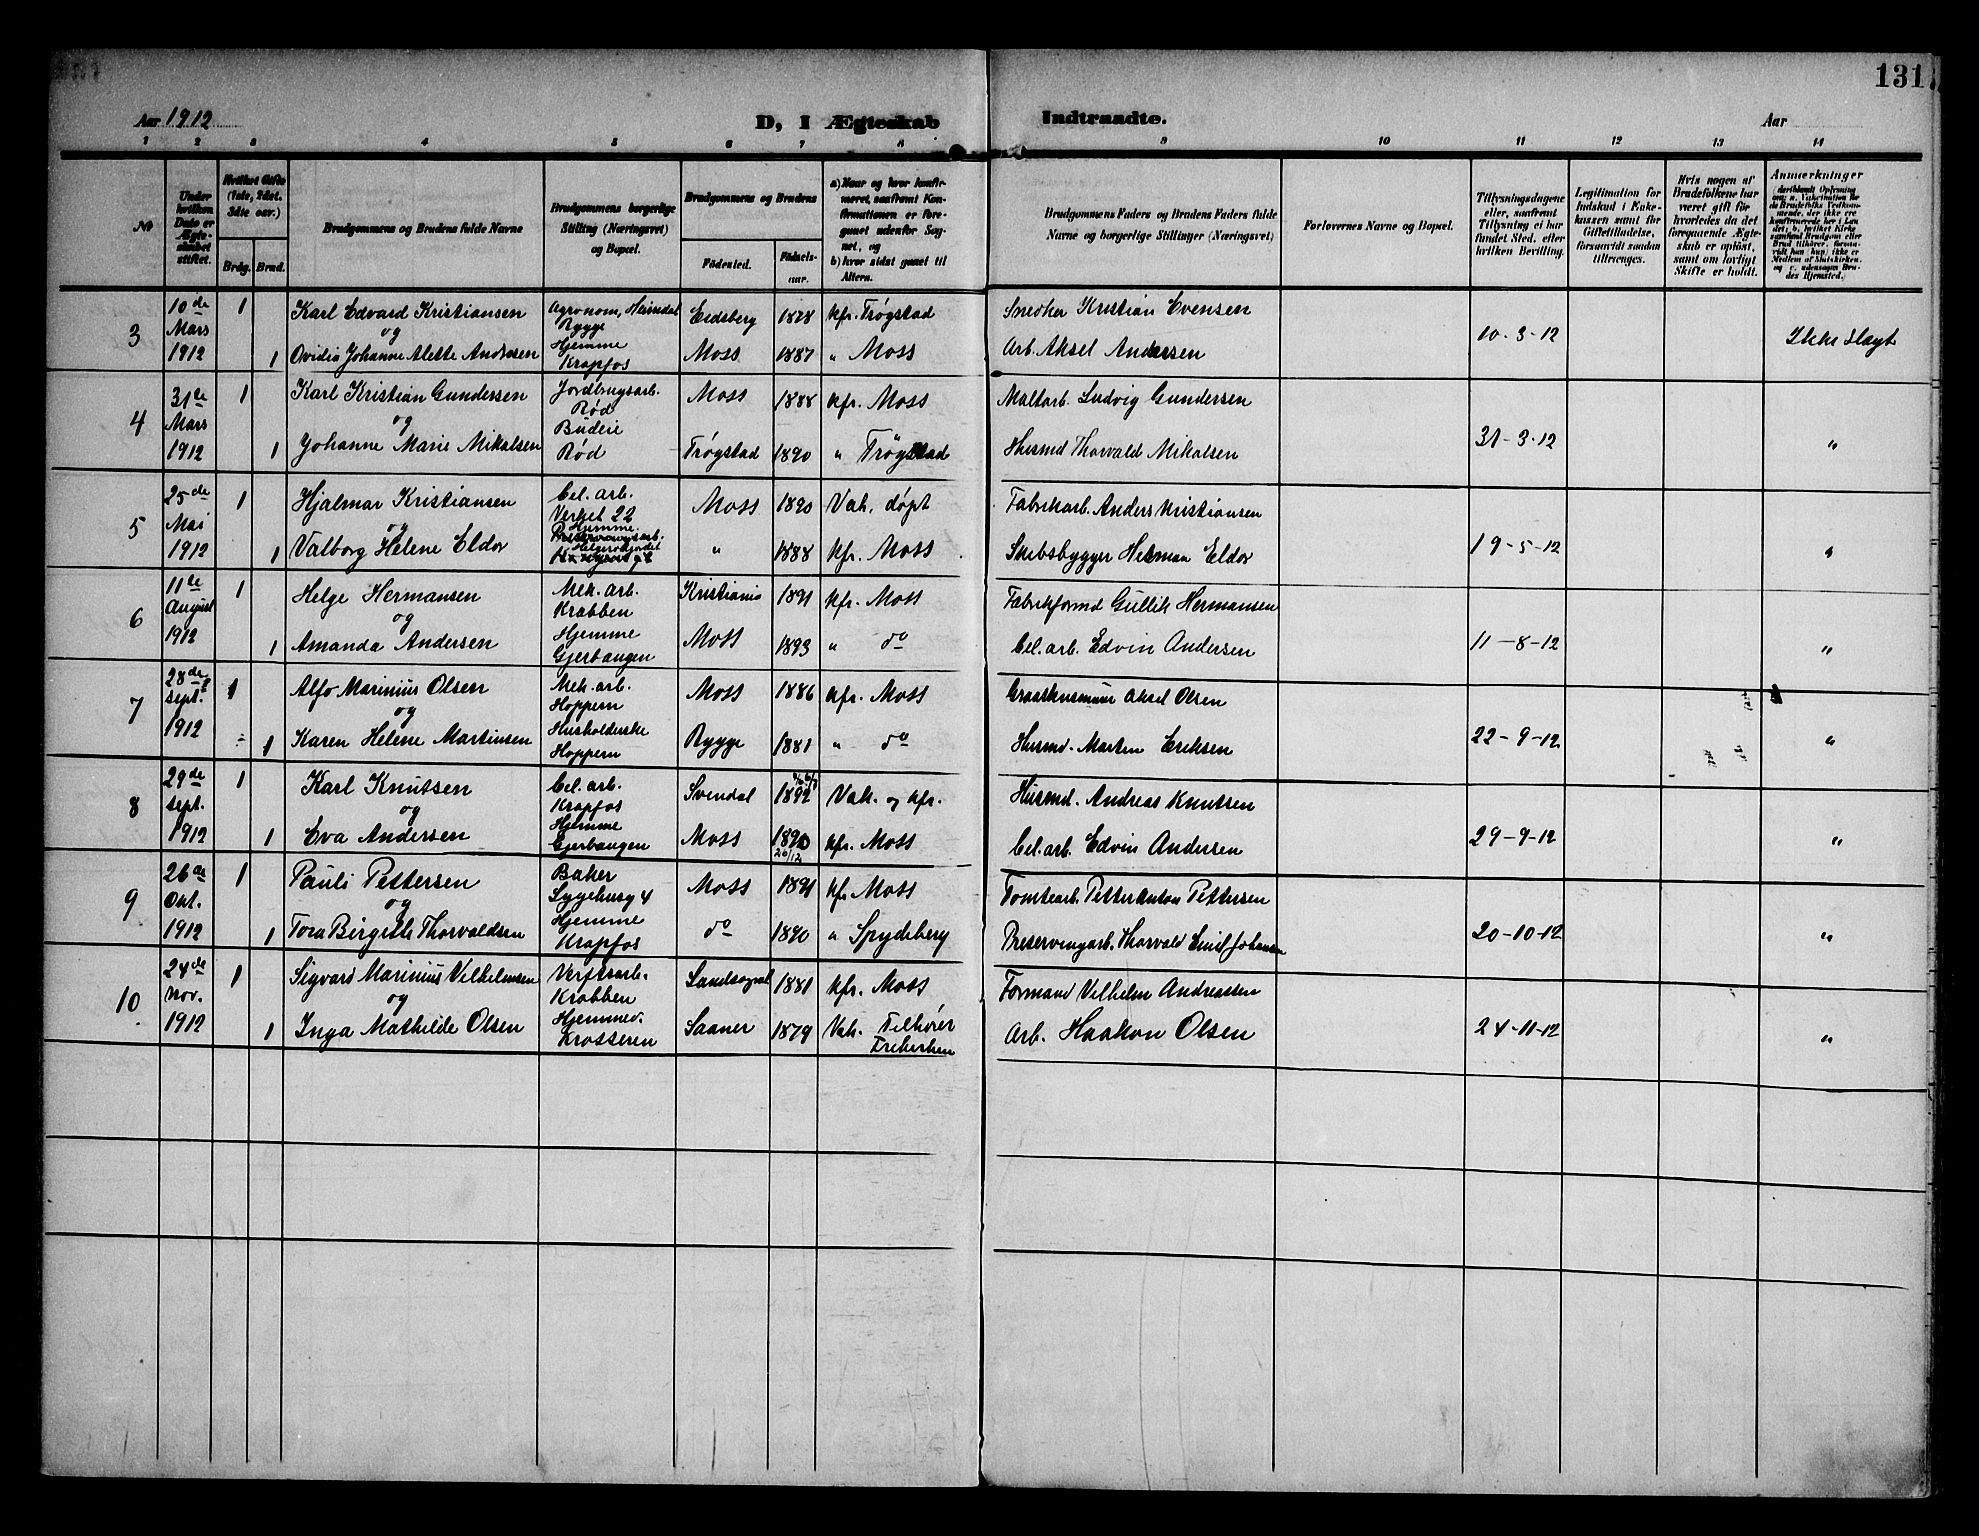 131
Aar 1912
D, I Ægteskab
Indtraadte.
Aar
1 2 3 4 5 6 7 8 9 10 11 12 13 14
No
Under hvilken Dato er Ægteskabet stiftet.
Hvilket Gifte (1ste, 2det, 3die osv.)
Brdg. Brud.
Brudgommens og Brudens fulde Navne
Brudgommens borgerlige Stilling (Næringsvei) og Bopæl.
Brudgommens og Brudens
Fødested.
Fødselsaar.
a) Naar og hvor konfirmeret, saafremt Konfirmationen er foregaaet udenfor Sognet, og
b) hvor sidst gaaet til Alters.
Brudgommens Faders og Brudens Faders fulde Navne og borgerlige Stillinger (Næringsvei)
Forlovernes Navne og Bopæl.
Tillysningsdagene eller, saafremt Tillysning ei har fundet Sted, efter hvilken Bevilling.
Legitimation for Indskud i Enkekassen samt for Giftetilladelse, forsaavidt saadan tiltrænges.
Hvis nogen af Brudefolkene har været gift før hvorledes da det foregaaende Ægteskab er opløst, samt om lovligt Skifte er holdt.
Anmerkninger
3
10de Mars 1912
1
Karl Edvard Kristiansen
Agronom, Heimdal
Rygge
Eidsberg
1878
kfr. Trøgstad
Snedker Kristian Evensen
10-3-12
Ikke slægt
og
1
Ovidia Johanne Alette Andersen
Hjemme
Krapfos
Moss
1887
" Moss
Arb. Aksel Andersen
4
31te Mars 1912
1
Karl Kristian Gundersen
Jordbrugsarb.
Rød
Moss
1888
kfr. Moss
Maltarb. Ludvig Gundersen
31-3-12
"
og
1
Johanne Marie Mikalsen
Budeie
Rød
Trøgstad
1890
" Trøgstad
Husmd Thorvald Mikalsen
5
25de Mai 1912
1
Hjalmar Kristiansen
Cel. arb.
Verket 22
Moss
1890
Vak. døpt
Fabrikarb. Anders Kristiansen
19-5-12
"
og
1
Valborg Helene Eldor
Hjemme
"
1888
kfr. Moss
Skibsbygger Herman Eldor
6
11te August 1912
1
Helge Hermansen
Mek. arb.
Krabben
Kristiania
1891
kfr. Moss
Fabrikformd Gullik Hermansen
11-8-12
"
og
1
Amanda Andersen
Hjemme
Gjerbaugen
Moss
1893
" do
Cel. arb. Edvin Andersen
7
28de sept. 1912
1
Alfo Marinius Olsen
Mek. arb.
Hoppern
Moss
1886
kfr. Moss
Aksel Olsen
22-9-12
"
og
1
Karen Helene Martinsen
Husholderske
Hoppern
Rygge
1881
" do
Husmd. Martin Eriksen
8
29de sept. 1912
1
Karl Knutsen
Cel. arb.
Krapfos
Svendal
1892
Vak. og kfr.
Husmd. Andreas Knutsen
29-9-12
"
og
1
Eva Andersen
Hjemme
Gjerbaugen
Moss
1890
20/12
kfr. Moss
Cel. arb. Edvin Andersen
9
26de Okt. 1912
1
Pauli Pettersen
Baker
Sygehusg 4
Moss
1891
kfr Moss
Tomtearb. Petter Anton Pettersen
20-10-12
"
og
1
Tora Birgitte Thorvaldsen
Hjemme
Krapfos
do
1890
" Spydeberg
Preservingarb. Thorvald Emil Johansen
10
24de Nov. 1912
1
Sigvard Marinius Vilhelmsen
Verftsarb.
Krabben
Landsognet
1881
kfr. Moss
Formand Vilhelm Andreassen
24-11-12
"
og
1
Inga Mathilde Olsen
Hjemmev.
Krosseren
Saaner
1879
Vak. Tilhører
Frikirken
Arb. Haakon Olsen